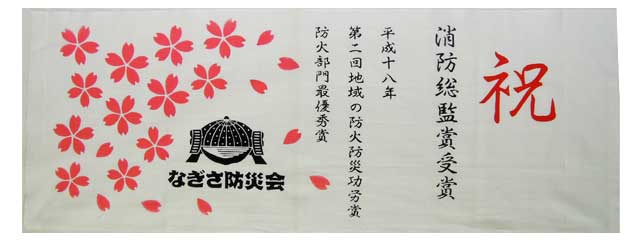 祝
消防総監賞受賞
平成十八年
第二回地域の防火防災功労賞
防火部門最優秀賞
なぎさ防災会